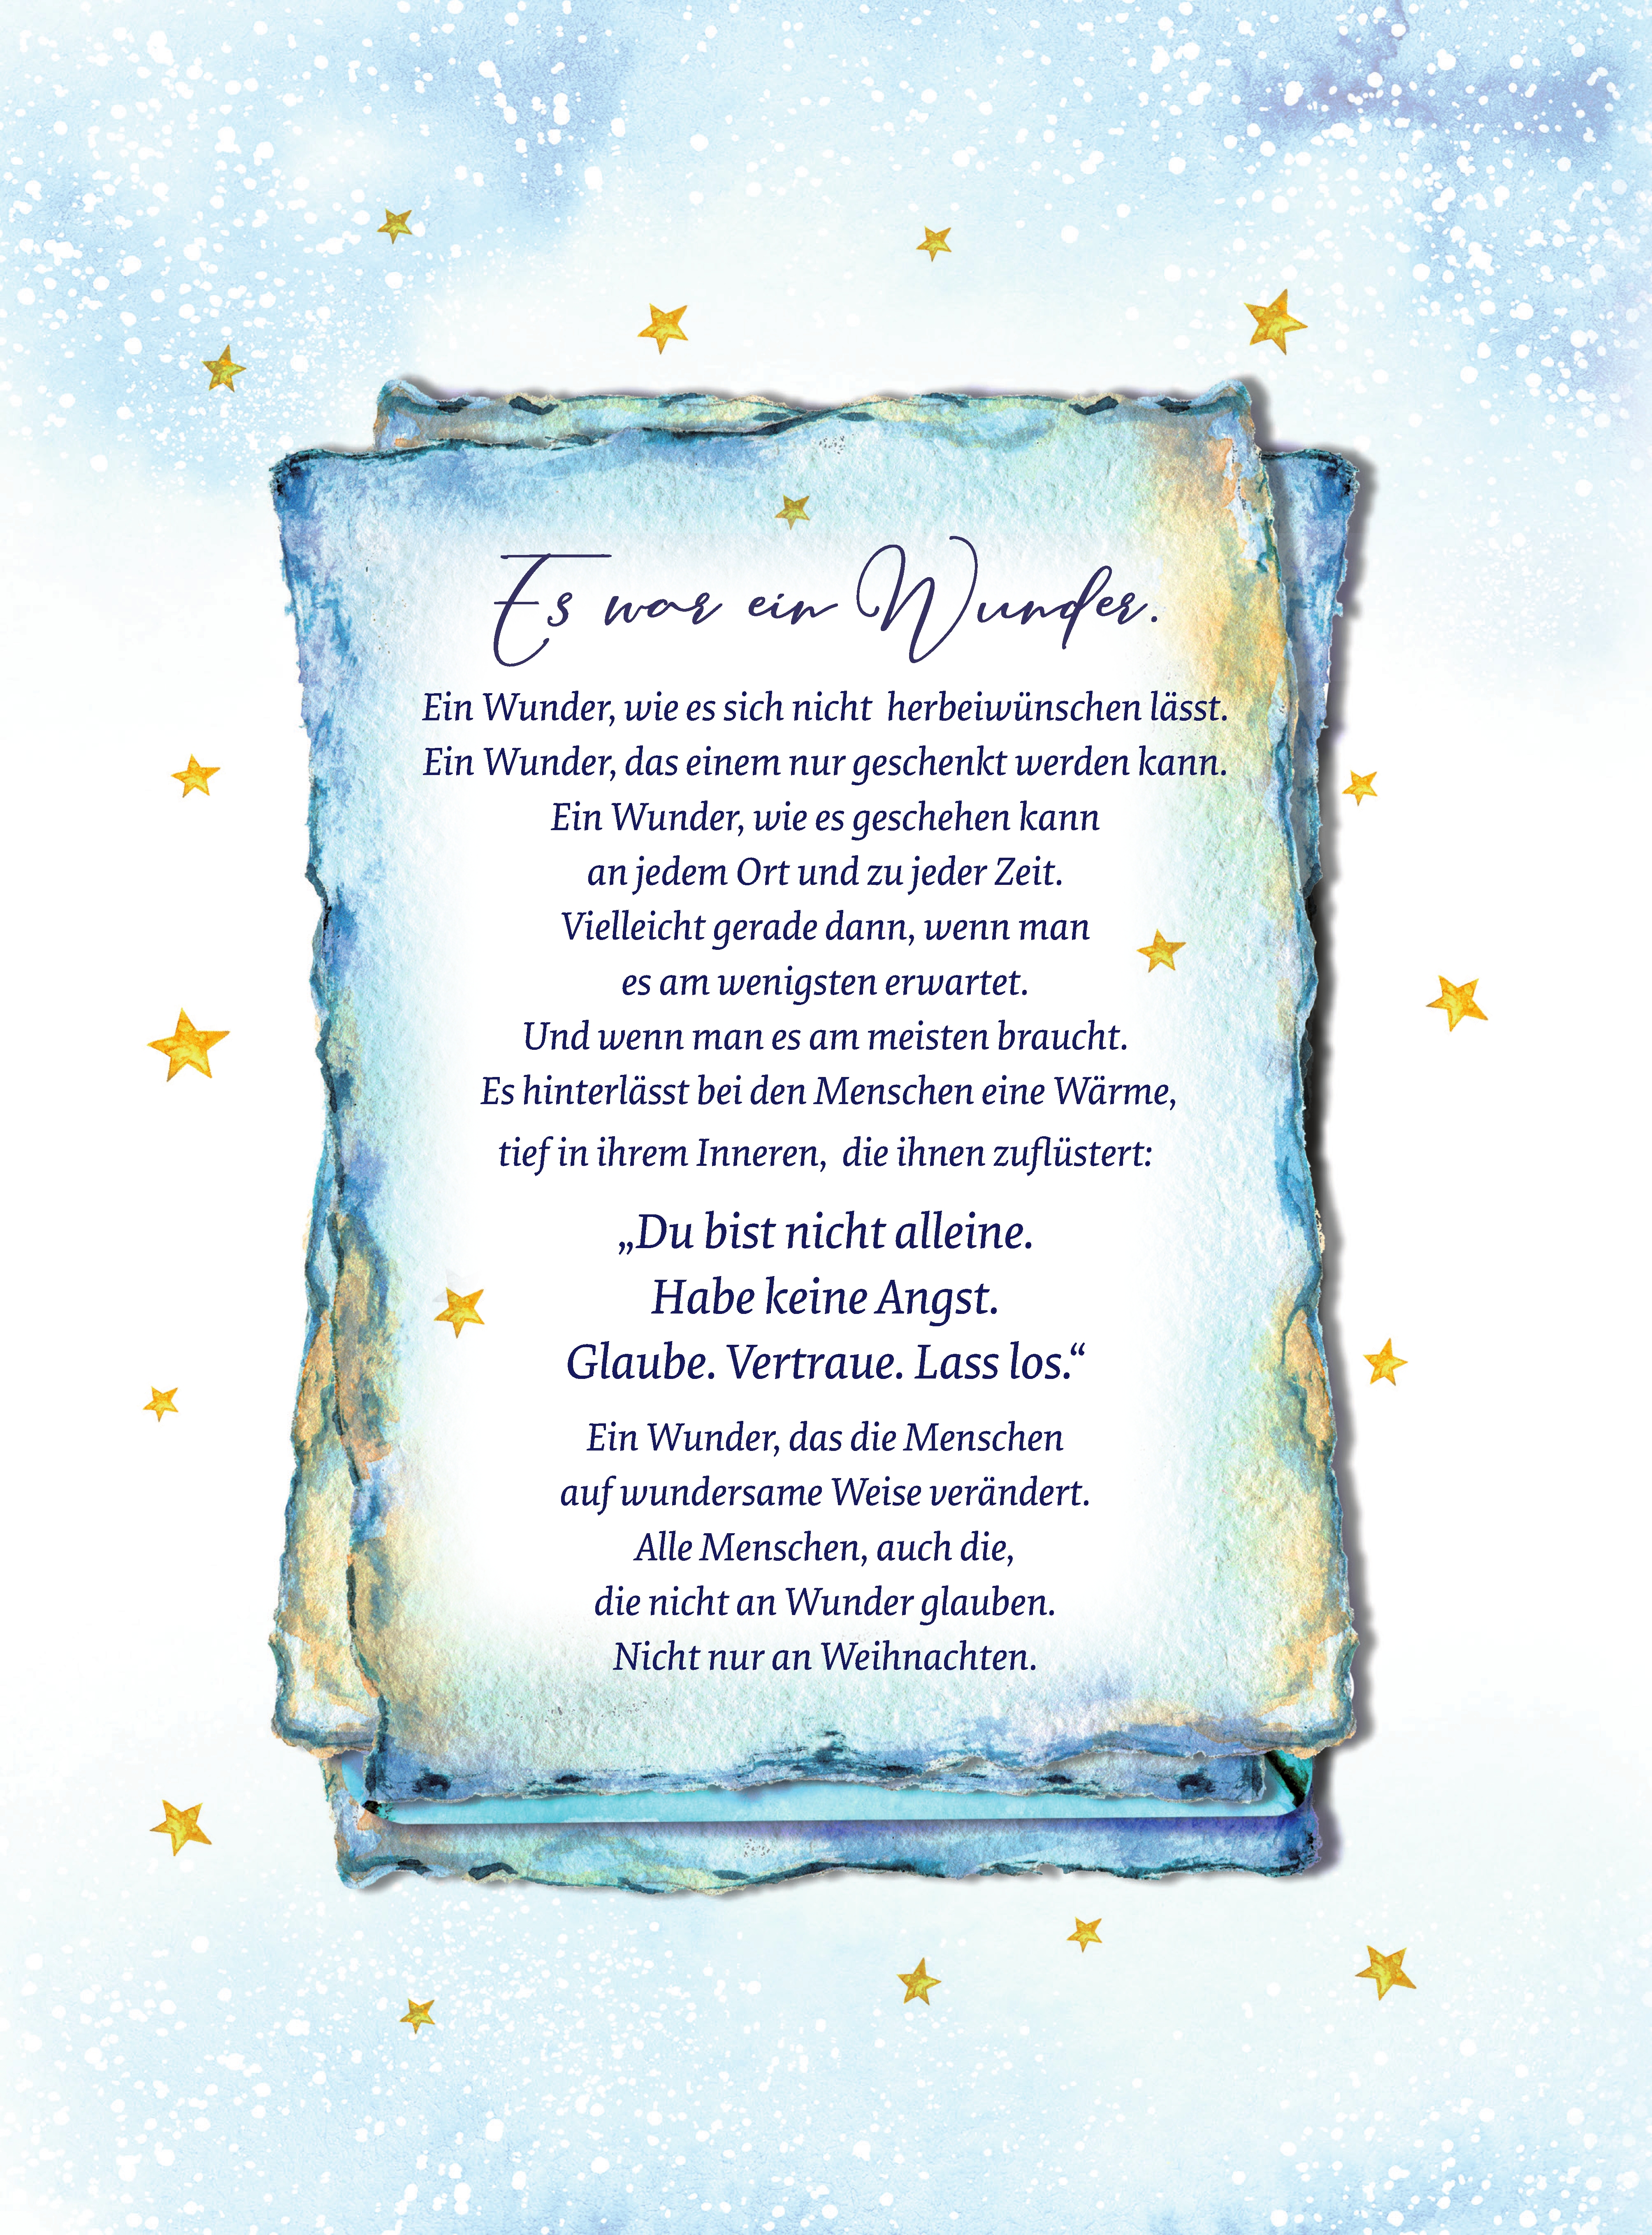 Es war ein Wunder.
Ein Wunder, wie es sich nicht  herbeiwünschen lässt.
Ein Wunder, das einem nur geschenkt werden kann.
Ein Wunder, wie es geschehen kann
an jedem Ort und zu jeder Zeit.
Vielleicht gerade dann, wenn man
es am wenigsten erwartet.
Und wenn man es am meisten braucht.
Es hinterlässt bei den Menschen eine Wärme,
tief in ihrem Inneren,  die ihnen zuflüstert:
„Du bist nicht alleine.
Habe keine Angst.
Glaube. Vertraue. Lass los.“
Ein Wunder, das die Menschen
auf wundersame Weise verändert.
Alle Menschen, auch die,
die nicht an Wunder glauben.
Nicht nur an Weihnachten.